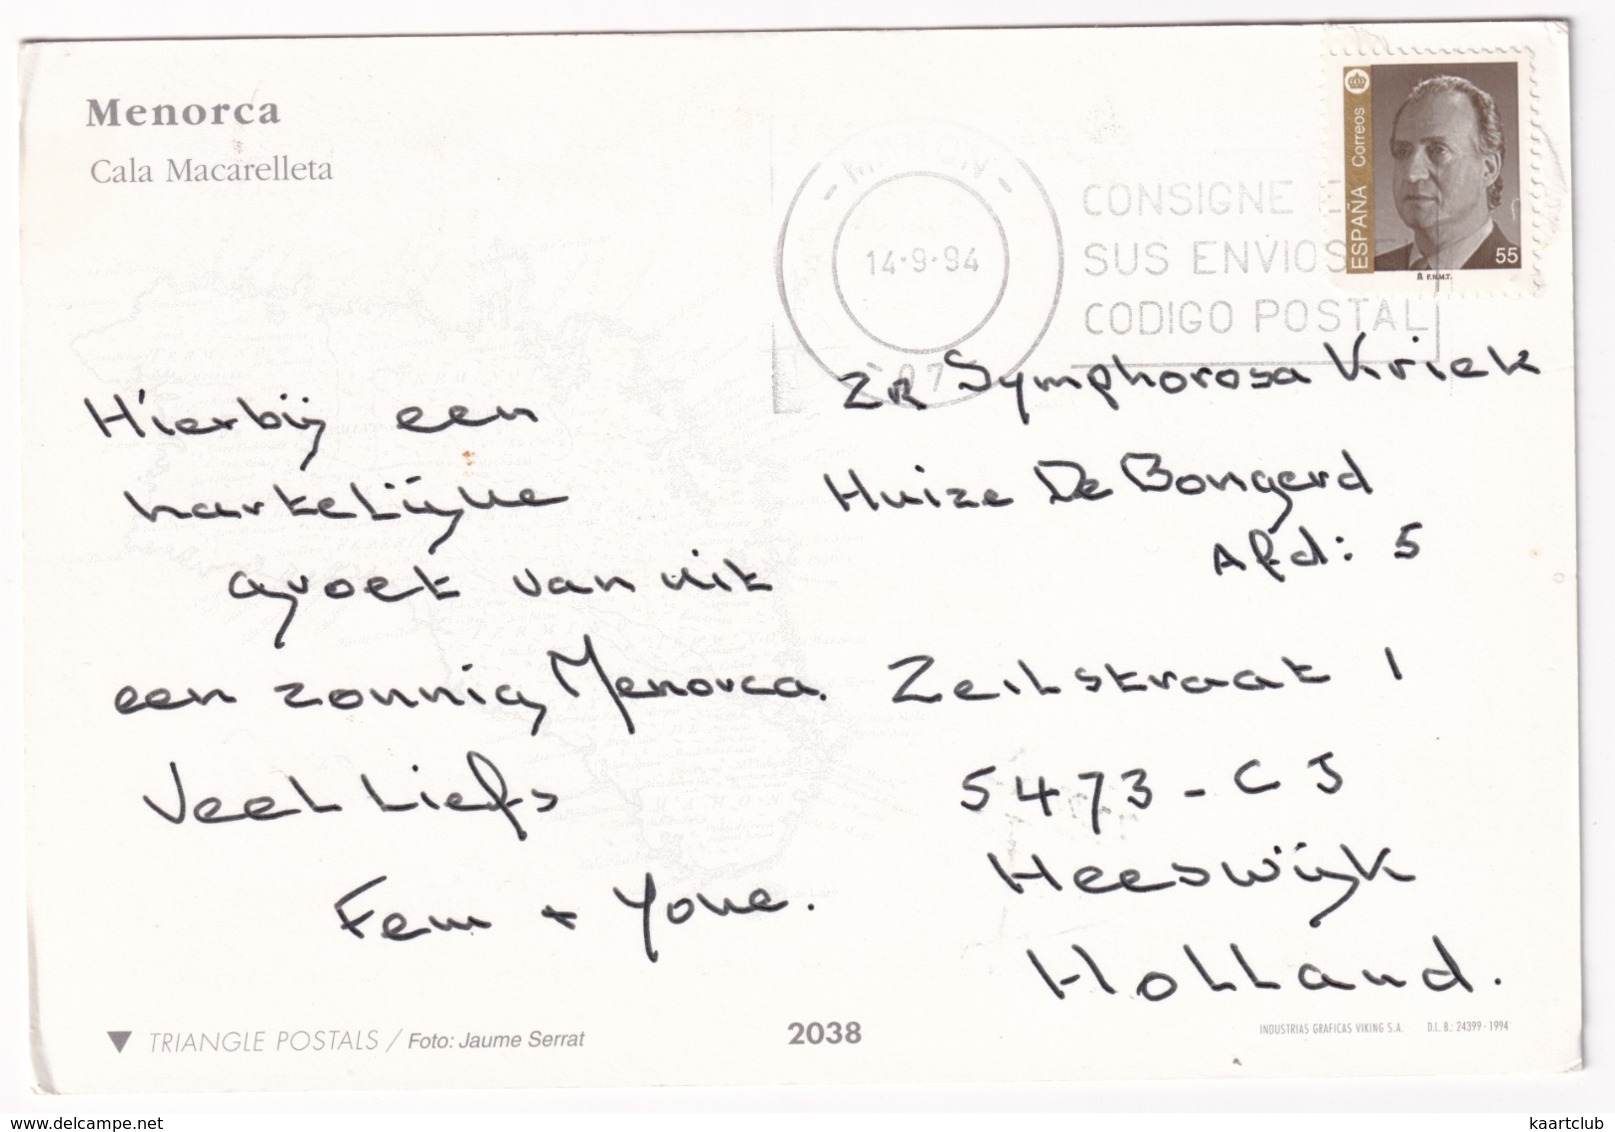 Menorca
Cala Macarelleta
MAHON
14·9·94
07
CONSIGNE E
SUS ENVIOS
CODIGO POSTAL
ESPAÑA Correos
55
F.N.M.T.
Hierbij een
hartelijke
groet van uit
een zonnig Menorca.
Veel Liefs
Fem + Yone.
ZR Symphorosa Kriek
Huize De Bongerd
Afd: 5
Zeilstraat 1
5473-CJ
Heeswijk
Holland.
TRIANGLE POSTALS / Foto: Jaume Serrat
2038
INDUSTRIAS GRAFICAS VIKING S.A. D.L.B.: 24399-1994
delcampe.net
kaartclub